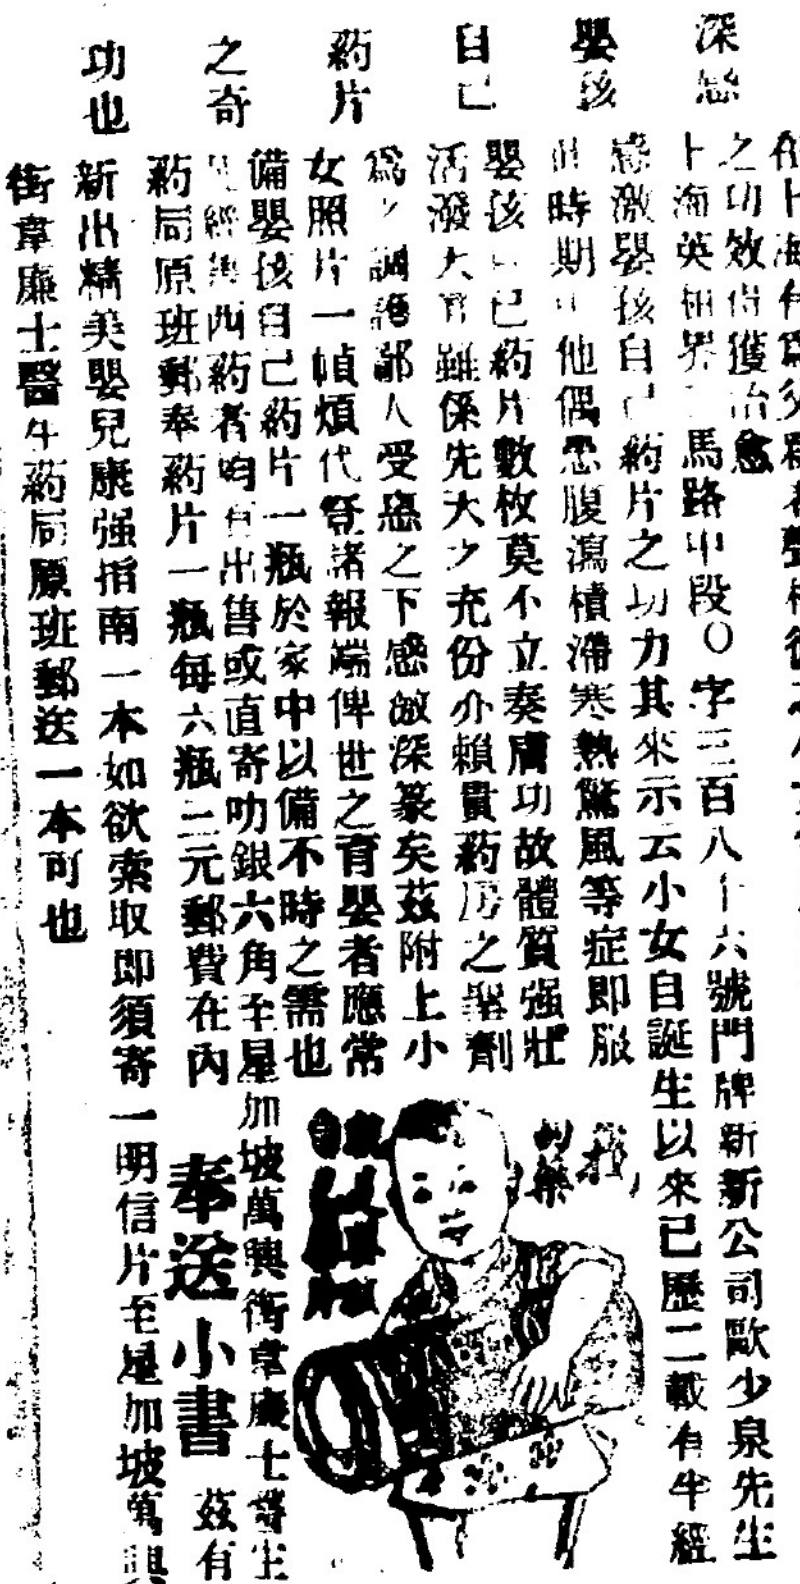 深感
嬰孩
自己
葯片
之奇
功也
之功效得獲治愈
上海英租界二馬路中段〇字三百八十六號門牌新新公司歐少泉先生
感激嬰孩自己葯片之功力其來示云小女自誕生以來已歷二載有半經
此時期中他偶患腹瀉積滯寒熱驚風等症即服
嬰孩自已葯片數枚莫不立奏膚功故體質强壯
活潑大方雖係先天之充份亦賴貴葯房之聖劑
爲之調護鄙人受惠之下感激深篆矣茲附上小
女照片一幀煩代登諸報端俾世之育嬰者應常
備嬰孩自己葯片一瓶於家中以備不時之需也
凡經售西葯者均有出售或直寄叻銀六角至星加坡萬興街韋廉士醫生
葯局原班郵奉葯片一瓶每六瓶三元郵費在內
奉送小書
茲有
新出精美嬰兒康强指南一本如欲索取即須寄一明信片至星加坡萬興
街韋廉士醫生葯局原班郵送一本可也